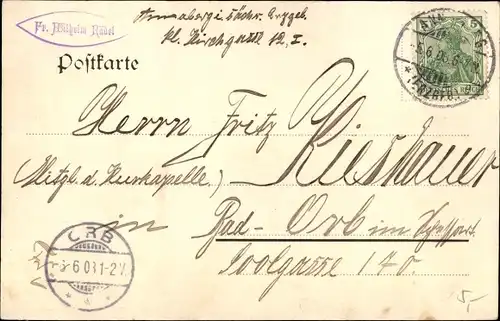 Fr. Wilhelm Rudel
Annaberg i. sächs. Erzgeb.
kl. Kirchgasse 12, I.
Postkarte
Herrn Fritz
Kieshauer
(Mitgl. d. Kurkapelle)
in Bad-Orb im Spessart
Soolgasse 170.
ORB
6 03 1-2 N
5,-